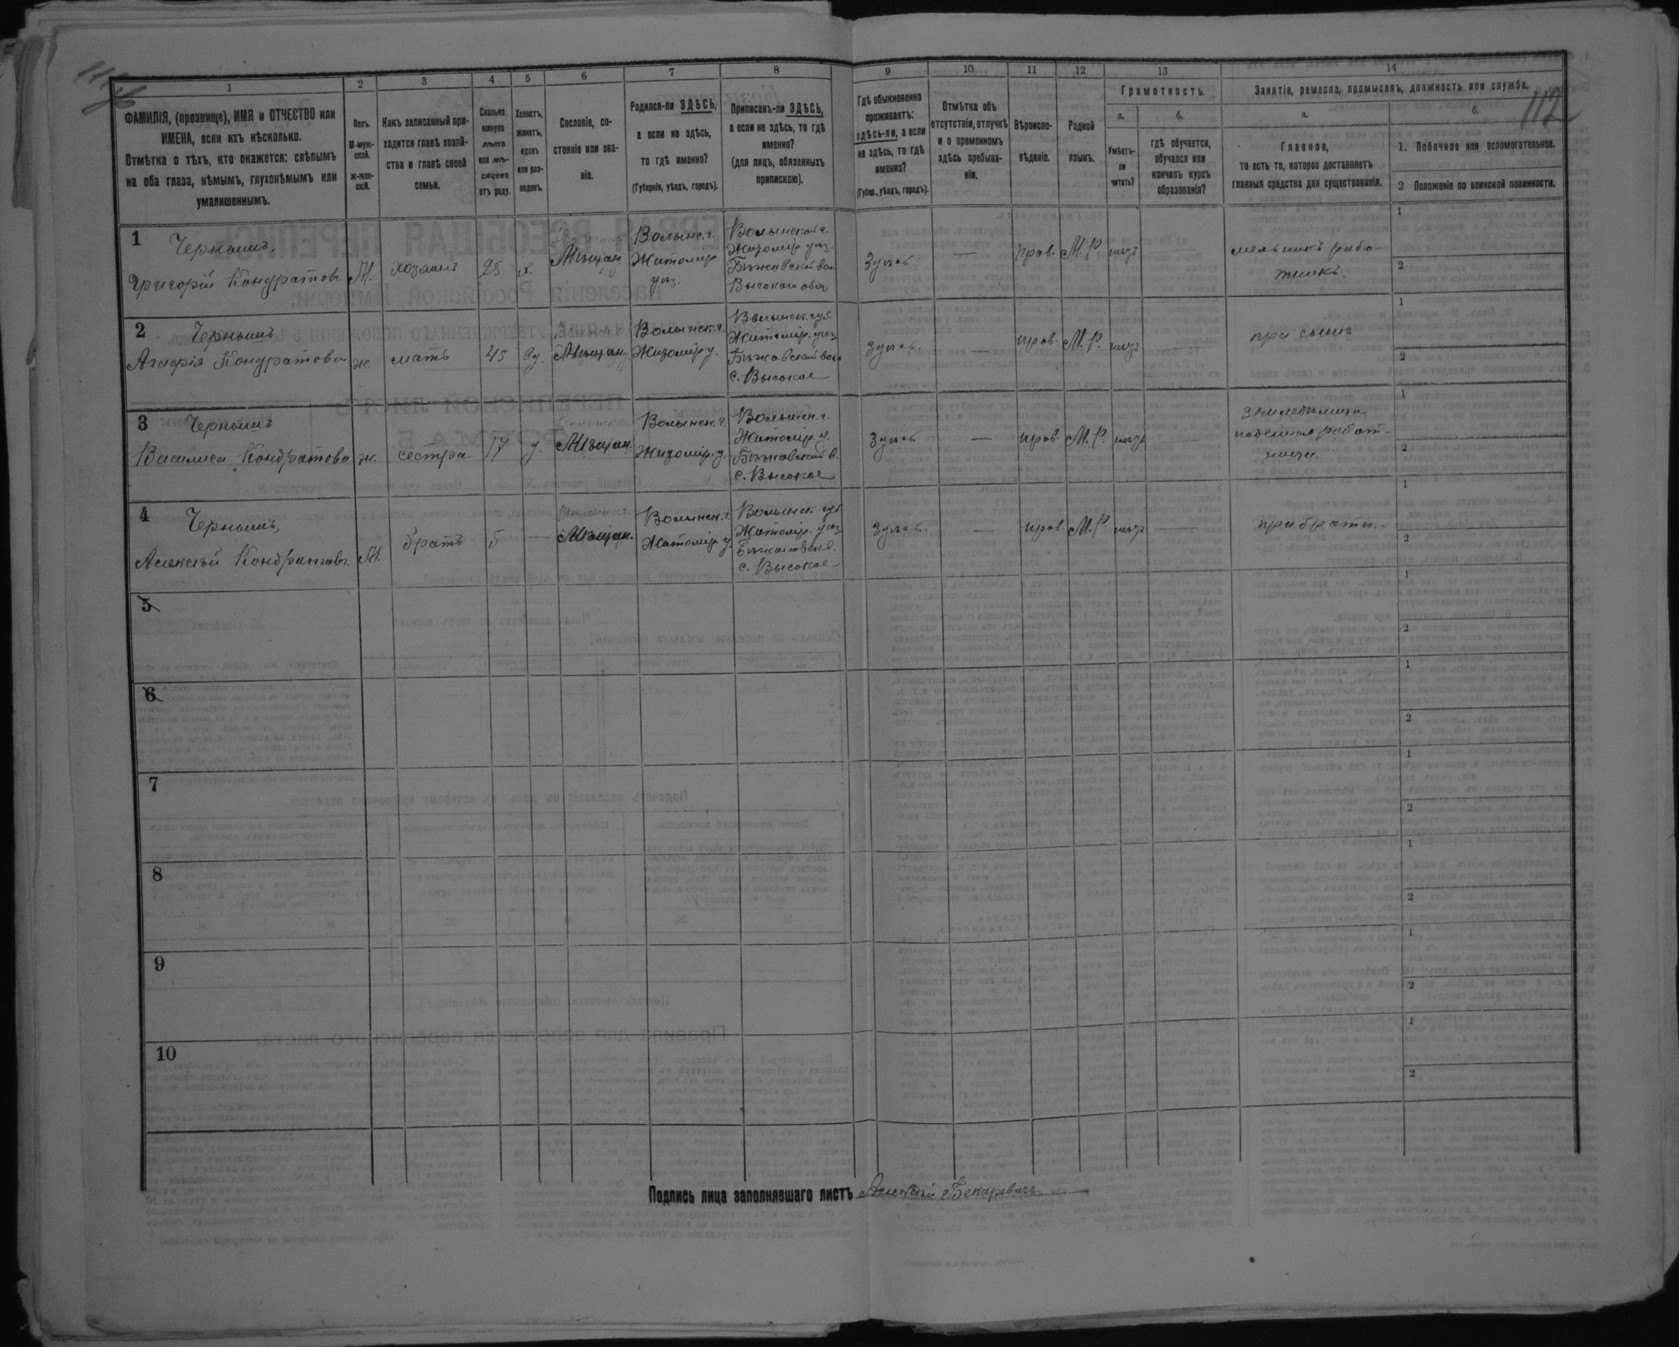 112
1
2
3
4
5
6
7
8
9
10
11
12
13
14
ФАМИЛІЯ, (прозвище), ИМЯ и ОТЧЕСТВО или
ИМЕНА, если ихъ нѣсколько.
Отмѣтка о тѣхъ, кто окажется: слѣпымъ
на оба глаза, нѣмымъ, глухонѣмымъ или
умалишеннымъ.
Полъ.
М-муж-
ской.
Ж-жен-
скій.
Какъ записанный при-
ходится главѣ хозяй-
ства и главѣ своей
семьи.
Сколько
минуло
лѣтъ
или мѣ-
сяцевъ
отъ роду.
Холостъ,
женатъ,
вдовъ
или раз-
веденъ.
Сословіе, со-
стояніе или зва-
ніе.
Родился-ли ЗДѢСЬ,
а если не здѣсь,
то гдѣ именно?
(Губернія, уѣздъ, городъ).
Приписанъ-ли ЗДѢСЬ,
а если не здѣсь, то гдѣ
именно?
(для лицъ, обязанныхъ
припискою).
Гдѣ обыкновенно
проживаетъ:
здѣсь-ли, а если
не здѣсь, то гдѣ
именно?
(Губер., уѣздъ, городъ).
Отмѣтка объ
отсутствіи, отлучкѣ
и о временномъ
здѣсь пребыва-
ніи.
Вѣроиспо-
вѣданіе.
Родной
языкъ.
Грамотность.
а.
Умѣетъ-
ли
читать?
б.
гдѣ обучается,
обучался или
кончилъ курсъ
образованія?
Занятіе, ремесло, промыселъ, должность или служба.
а.
Главное,
то есть то, которое доставляетъ
главныя средства для существованія.
б.
1. Побочное или вспомогательное.
2 Положеніе по воинской повинности.
1
Чернышъ,
Григорій Кондратовъ
М.
хозяинъ
25
х
Мѣщан
Волынс. г.
Житомір
уѣз.
Волынской г.
Житомір уѣз.
Здѣсь
—
прав.
М. Р.
нѣтъ
—
мельникъ рабо-
тникъ
1
2
2
Чернышъ
Агафія Кондратова
ж.
мать
45
вд.
Мѣщан.
Волынск. г.
Житомір у.
Волынск. губ.
Житомір. уѣз.
с. Высокое
Здѣсь.
—
прав.
М. Р.
нѣтъ
—
при сынѣ
1
2
3
Чернышъ
Василиса Кондратова
ж.
сестра
17
д.
Мѣщан.
Волынск. г.
Житомір. у.
Волынск. г.
Житомір. у.
с. Высокое
Здѣсь
—
прав.
М. Р.
нѣтъ
—
1
2
4
Чернышъ,
Алексѣй Кондратовъ.
М.
братъ
5
—
Мѣщан.
Волынск. г.
Житомір. у.
Волынск. губ.
Житомір. уѣз.
с. Высокое
Здѣсь.
—
прав.
М. Р.
нѣтъ
—
при братѣ.
1
2
5
1
2
6
1
2
7
1
2
8
1
2
9
1
2
10
1
2
Подпись лица заполнявшаго листъ Алексѣй